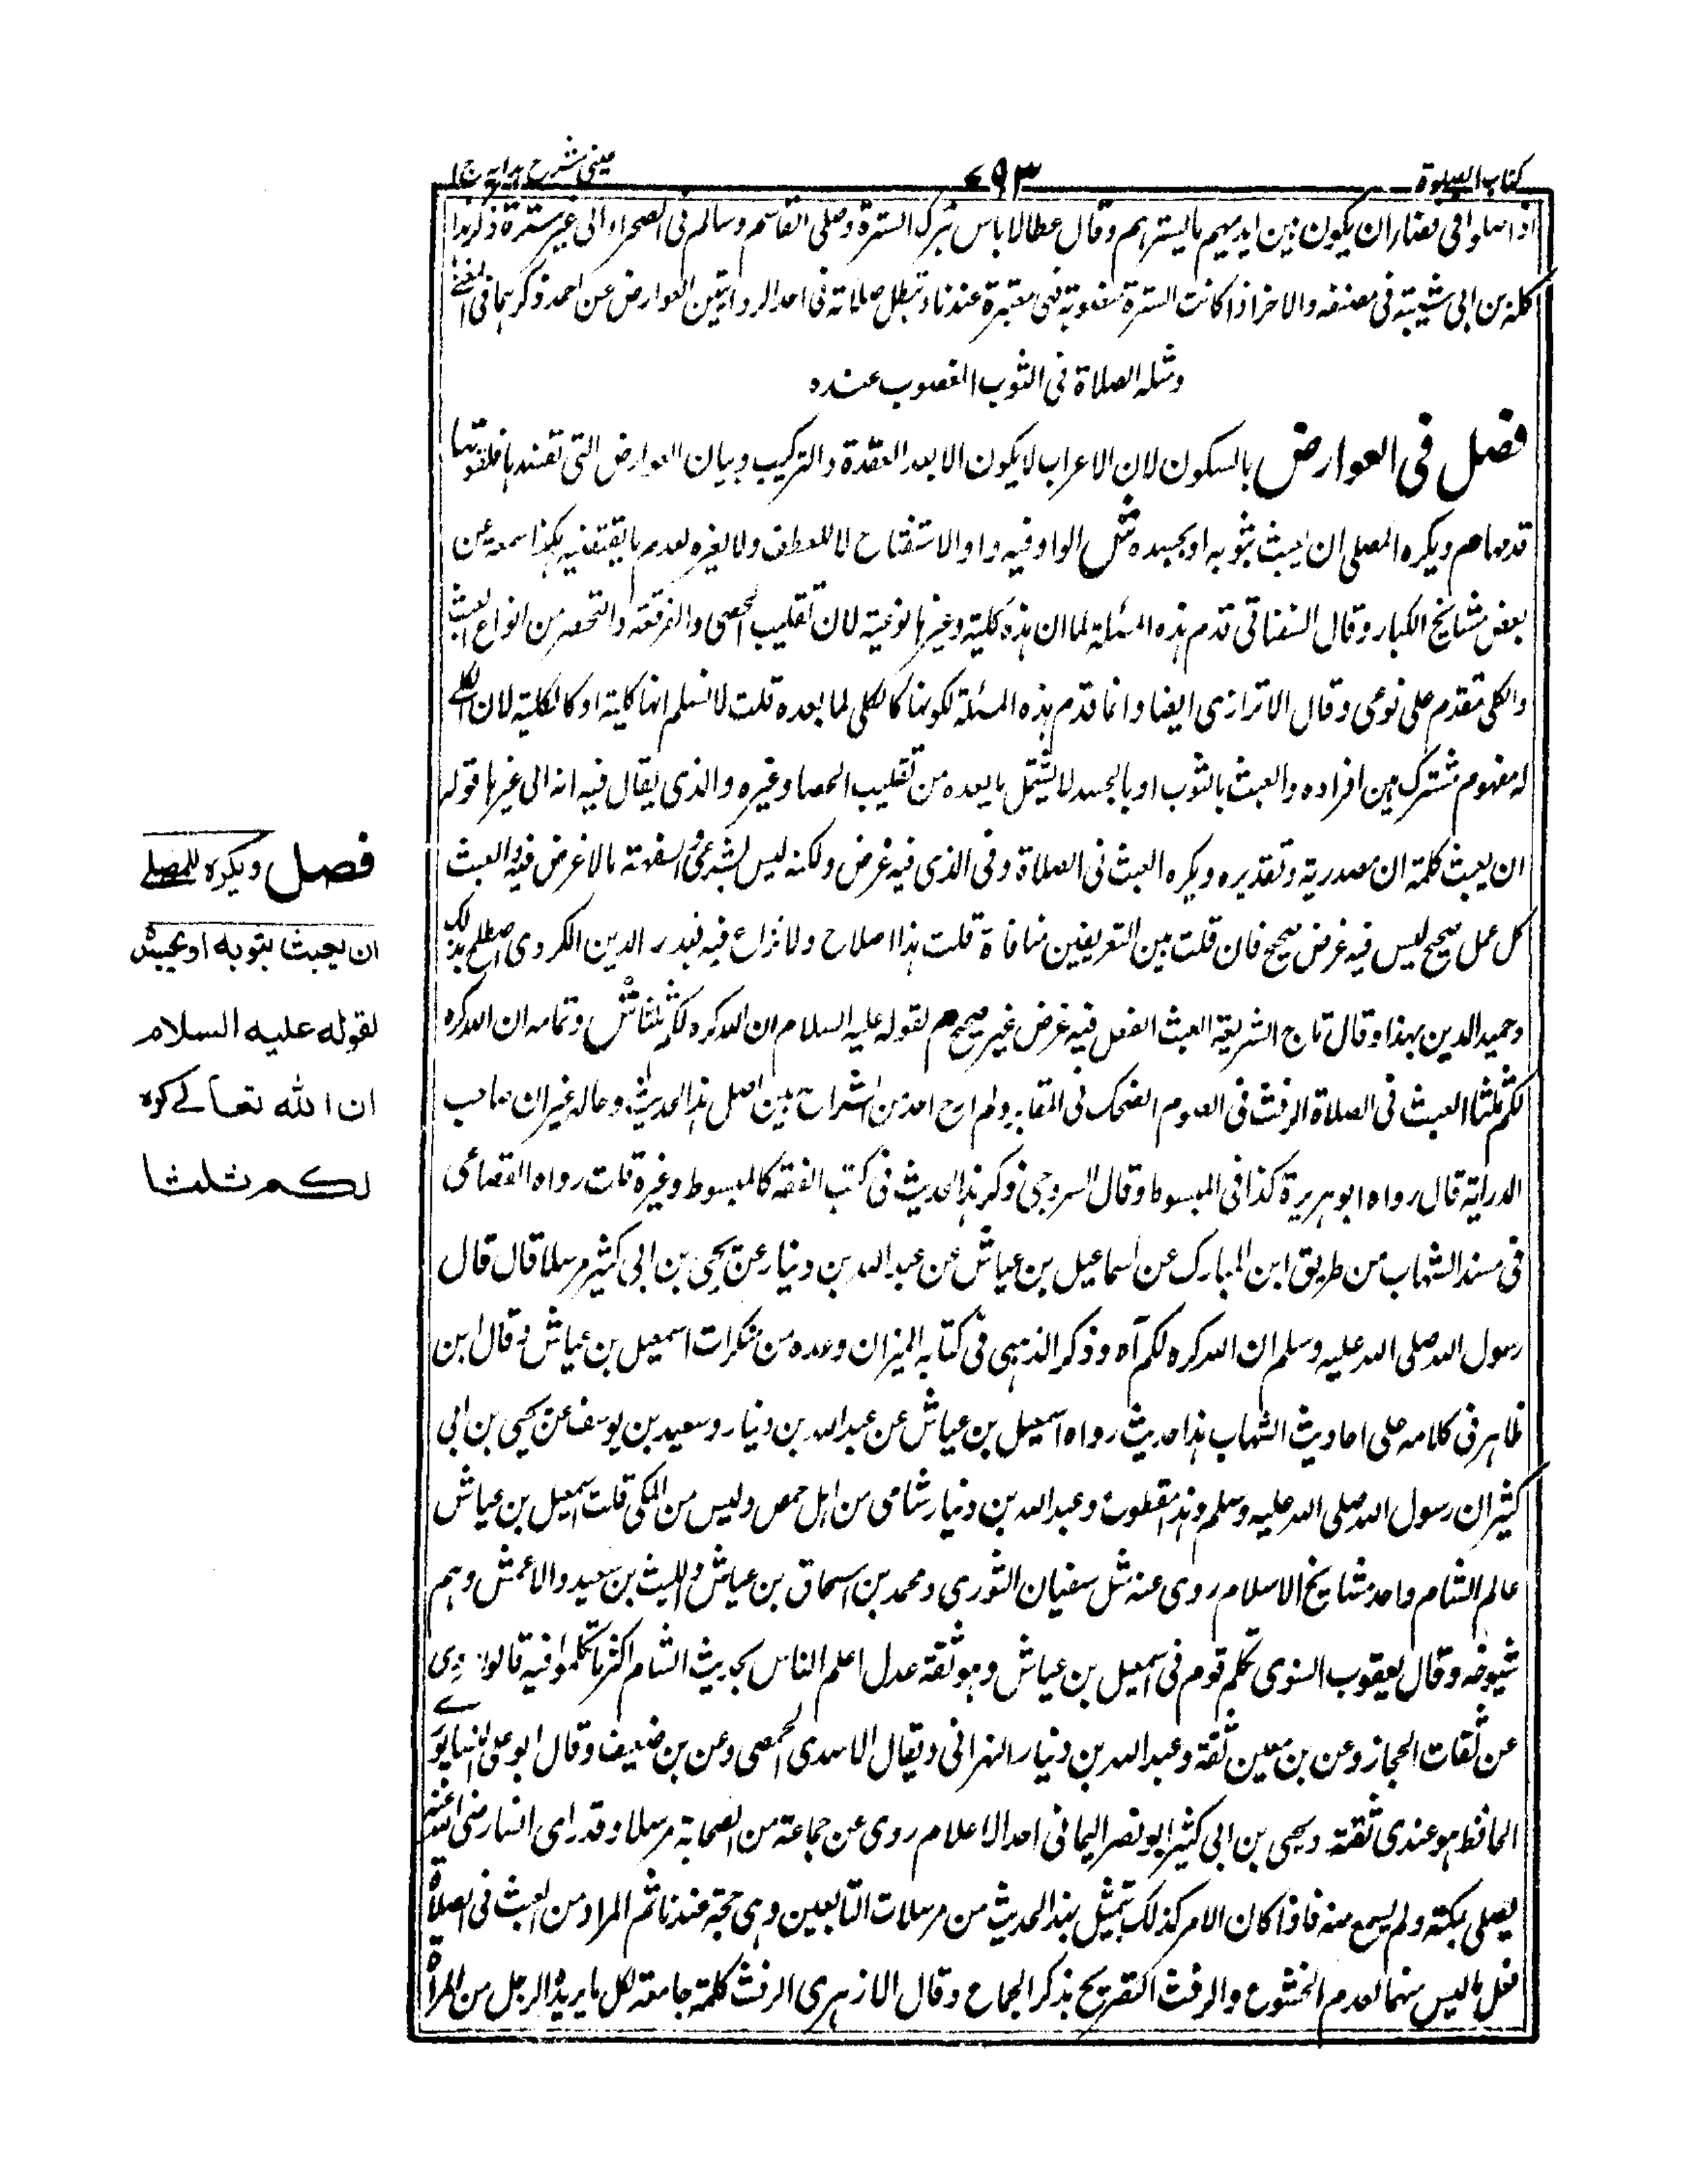 كتاب الصلوة
٧٩٣
عينى شرح هدايه ج ١
اذا صلوا فى فضاء ان يكون بين ايديهم ما يسترهم وقال عطا لا باس بترك السترة وصلى القاسم وسالم فى الصحراء الى غير سترة ذكر هذا
كله بن ابى شيبة فى مصنفه والاخر اذا كانت السترة مغصوبة فهى معتبرة عندنا وتبطل صلاته فى احد الروايتين العوارض عن احمد ذكرهما فى المغنى
ومثله الصلاة فى الثوب المغصوب عنده
فصل فى العوارض بالسكون لان الاعراب لا يكون الا بعد العقدة والتركيب وبيان العوارض التى
قدمها م ويكره للمصلى ان يعبث بثوبه او بجسده ش الواو فيه واو الاستفتاح لا للعطف ولا لغيره لعدم ما يقتضيه هكذا سمعته عن
بعض مشايخ الكبار وقال السغناقى قدم هذه المسئلة لما ان هذه كلية وغيرها نوعية لان تقليب الحصى والفرقعة والتخصر من انواع العبث
والكلى مقدم على نوعى وقال الاترازى ايضا وانما قدم هذه المسئلة لكونها كالكلى لما بعده قلت لا نسلم انها كلية او كالكلية لان الكلى
له مفهوم مشترك بين افراده والعبث بالثوب او بالجسد لا يشتمل ما بعده من تقليب الحصا وغيره والذى يقال فيه انه الى غيرها قوله
ان يعبث كلمة ان مصدرية وتقديره ويكره العبث فى الصلاة وفى الذى فيه غرض ولكنه ليس بشرعى والسفه ما لا غرض فيه والعبث
كل عمل صحيح ليس فيه غرض صحيح فان قلت بين التعريفين منافاة قلت هذا اصلاح ولا نزاع فيه فبدر الدين الكردى اصطلح بذلك
وحميد الدين بهذا وقال تاج الشريعة العبث الفعل فيه غرض غير صحيح م لقوله عليه السلام ان الله كره لكم ثلثا ش وتمامه ان الله كره
لكم ثلثا العبث فى الصلاة الرفث فى الصوم الضحك فى المقابر ولم ار احد من الشراح بين اصل هذا الحديث وحاله غير ان صاحب
الدراية قال رواه ابو هريرة كذا فى المبسوط وقال السروجى ذكر هذا الحديث فى كتب الفقه كالمبسوط وغيره قلت رواه القضاعى
فى مسند الشهاب من طريق ابن المبارك عن اسماعيل بن عياش عن عبد الله بن دينار عن يحيى بن ابى كثير مرسلا قال قال
رسول الله صلى الله عليه وسلم ان الله كره لكم آه وذكر الذهبى فى كتابه الميزان وعده من منكرات اسمعيل بن عياش وقال ابن
ظاهر فى كلامه على احاديث الشهاب هذا حديث رواه اسمعيل بن عياش عن عبد الله بن دينار وسعيد بن يوسف عن يحيى بن ابى
كثير ان رسول الله صلى الله عليه وسلم وهذا مقطوع وعبد الله بن دينار شامى من اهل حمص وليس من المكى قلت اسمعيل بن عياش
عالم الشام واحد مشايخ الاسلام روى عنه مثل سفيان الثورى ومحمد بن اسحاق بن عياش والليث بن سعيد والاعمش وهم
شيوخه وقال يعقوب السنوى تكلم قوم فى اسمعيل بن عياش وهو ثقة عدل اعلم الناس بحديث الشام اكثر ما تكلموا فيه قالوا روى
عن ثقات الحجاز وعن بن معين ثقة وعبد الله بن دينار النهرانى ويقال الاسدى الحمصى وعن بن ضعيف وقال ابو على النيسابورى
الحافظ هو عندى ثقة ويحيى بن ابى كثير ابو نصر اليمانى احد الاعلام روى عن جماعة من الصحابة مرسلا وقد راى انسا رضى الله عنه
يصلى بمكة ولم يسمع منه فاذا كان الامر كذلك هذا الحديث من مرسلات التابعين وهى حجة عندنا ثم المراد من العبث فى الصلاة
فعل ما ليس منها لعدم الخشوع والرفث التصريح بذكر الجماع وقال الازهرى الرفث كلمة جامعة لكل ما يريد الرجل من المرأة
فصل ويكره للمصلے
ان يعبث بثوبه او بجسده
لقوله عليه السلام
ان الله تعالے كره
لكم ثلثا